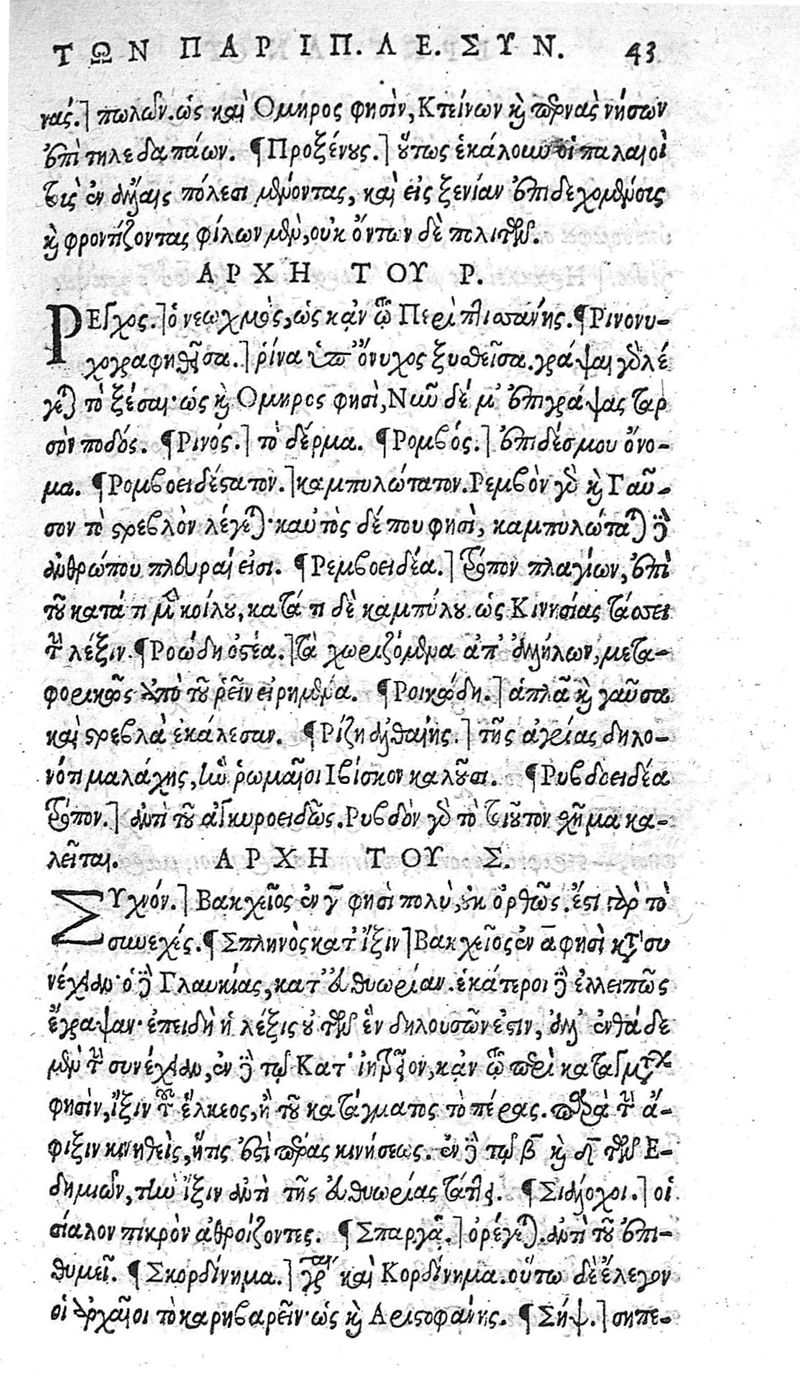 ΤΩΝ ΠΑΡ ΙΠ. ΛΕ. ΣΥΝ. 43
νάς.] πωλῶν. ὡς καὶ Ὅμηρος φησὶν, Κτείνων καὶ περνὰς νήσων
ἐπὶ τηλεδαπάων. ¶Προξένους.] οὕτως ἐκάλουν οἱ παλαιοὶ
τοὺς ἐν ἄλλαις πόλεσι μένοντας, καὶ εἰς ξενίαν ἐπιδεχομένους
καὶ φροντίζοντας φίλων μὲν, οὐκ ὄντων δὲ πολιτῶν.
ΑΡΧΗ ΤΟΥ Ρ.
ΡΕΓχος.] ὁ νεωχμὸς, ὡς κἀν τῷ Περὶ πτισάνης. ¶Ρινονυ-
χογραφηθεῖσα.] ῥίνα ὑπ' ὄνυχος ξυσθεῖσα. γράψαι γὰρ λέ
γεται τὸ ξέσαι· ὡς καὶ Ὅμηρος φησὶ, Νῦν δέ μ' ἐπιγράψας ταρ
σὸν ποδός. ¶Ρινός.] τὸ δέρμα. ¶Ρομβός.] ἐπιδέσμου ὄνο-
μα. ¶Ρομβοειδέστατον.] καμπυλώτατον. Ρεμβὸν γὰρ καὶ Γαῦ-
σον τὸ στρεβλὸν λέγεται· καὐτὸς δέ που φησὶ, καμπυλώταται δὲ
ἀνθρώπου πλευραί εἰσι. ¶Ρεμβοειδέα.] τρόπον πλαγίων, ἐπὶ
τοῦ κατά τι μὲν κοίλου, κατά τι δὲ καμπύλου. ὡς Κινησίας τάσσει
τὴν λέξιν. ¶Ροώδη ὀστέα.] τὰ χωριζόμενα ἀπ' ἀλλήλων, μετα-
φορικῶς ἀπὸ τοῦ ῥεῖν εἰρημένα. ¶Ροικώδη.] ἁπλᾶ καὶ γαῦσα
καὶ στρεβλὰ ἐκάλεσαν. ¶Ρίζη ἀλθαίης.] τῆς ἀγρίας δηλο-
νότι μαλάχης, ἣν ῥωμαῖοι Ἰβίσκον καλοῦσι. ¶Ρυβδοειδέα
τρόπον.] ἀντὶ τοῦ ἀγκυροειδῶς. Ρυβδὸν γὰρ τὸ τοιοῦτον σχῆμα κα-
λεῖται. ΑΡΧΗ ΤΟΥ Σ.
ΣΥχνόν.] Βακχεῖος ἐν γ̅ φησὶ πολὺ, οὐκ ὀρθῶς. ἔστι γὰρ τὸ
συνεχές. ¶Σπληνὸς κατ' ἴξιν] Βακχεῖος ἐν α̅ φησὶ κατὰ συ
νέχειαν· ὁ δὲ Γλαυκίας, κατ' εὐθυωρίαν. ἑκάτεροι δὲ ἐλλειπῶς
ἔγραψαν· ἐπειδὴ ἡ λέξις οὐ τῶν ἓν δηλουσῶν ἐστιν, ἀλλ' ἐνθάδε
μὲν τὴν συνέχειαν, ἐν δὲ τῷ Κατ' ἰητρεῖον, κἀν τῷ περὶ καταγμάτων
φησὶν, ἴξιν τοῦ ἕλκεος, ἢ τοῦ κατάγματος τὸ πέρας. παρὰ τὴν ἄ-
φιξιν κινηθεὶς, ἥτις ἐστὶ πέρας κινήσεως. ἐν δὲ τῷ β̅ καὶ δ̅ τῶν Ε-
δημιῶν, τὴν ἴξιν ἀντὶ τῆς εὐθυωρίας τάττει. ¶Σιελοχοι.] οἱ
σίαλον πικρὸν ἀθροίζοντες. ¶Σπαργᾷ.] ὀρέγεται. ἀντὶ τοῦ ἐπι-
θυμεῖ. ¶Σκορδίνημα.] γράφεται καὶ Κορδίνημα. οὕτω δὲ ἔλεγον
οἱ ἀρχαῖοι τὸ καρηβαρεῖν· ὡς καὶ Ἀριστοφάνης. ¶Σήψ.] σηπε-